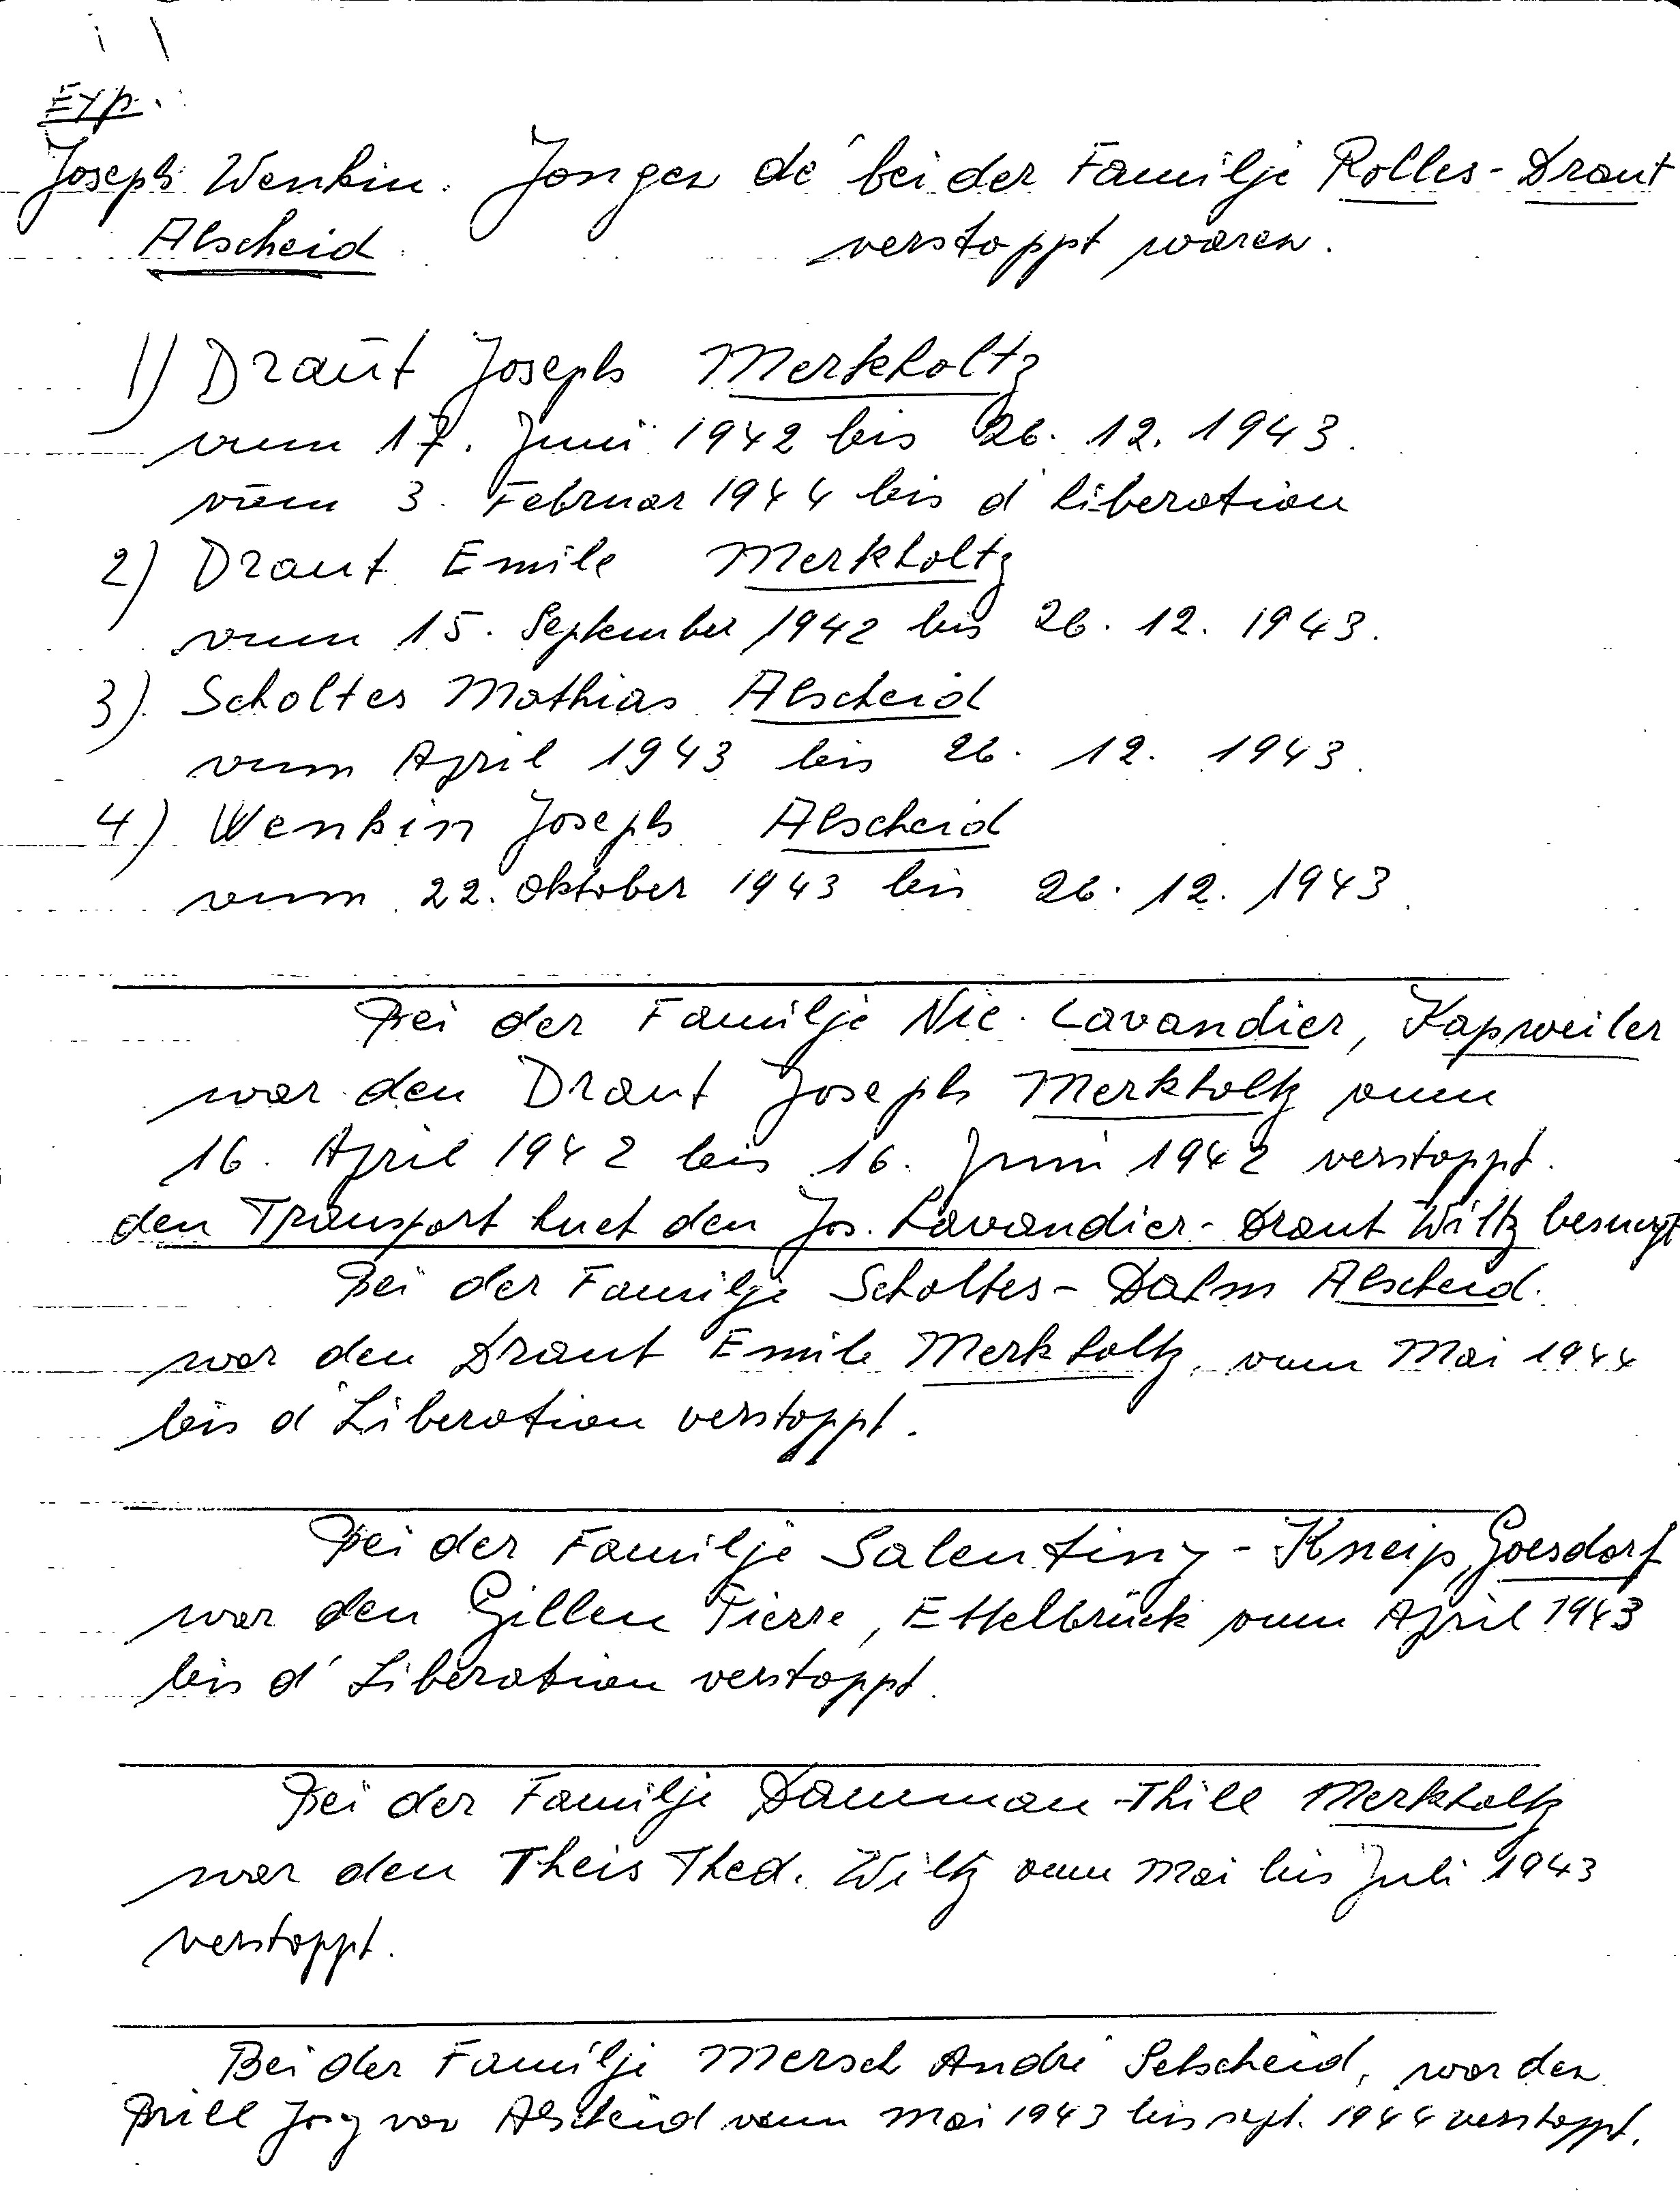 Exp.
Joseph Wenkin. Jongen dé bei der Familje Rolles-Draut
Alscheid verstoppt waren.
1) Draut Joseph Merkholtz
vum 17. Juni 1942 bis 26. 12. 1943.
vum 3. Februar 1944 bis d'liberation
2) Draut Emile Merkholtz
vum 15. September 1942 bis 26. 12. 1943.
3) Scholtes Mathias Alscheid
vum April 1943 bis 26. 12. 1943.
4) Wenkin Joseph Alscheid
vum 22. Oktober 1943 bis 26. 12. 1943.
Bei der Familje Nic. Lavandier, Kapweiler
war den Draut Joseph Merkholtz vum
16. April 1942 bis 16. Juni 1942 verstoppt.
den Transport huet den Jos. Lavandier-Draut Wiltz besuergt
Bei der Familje Scholtes-Dahm Alscheid.
war den Draut Emile Merkholtz, vum Mai 1944
bis d'Liberation verstoppt.
Bei der Familje Salentiny-Kneip, Goesdorf
war den Gillen Pierre, Ettelbrück vum April 1943
bis d'Liberation verstoppt.
Bei der Familje Damman-Thill Merkholtz
war den Theis Thed. Wiltz vum Mai bis Juli 1943
verstoppt.
Bei der Familje Mersch André Selscheid, war den
Prill Josy vov Alscheid vum Mai 1943 bis sept. 1944 verstoppt.